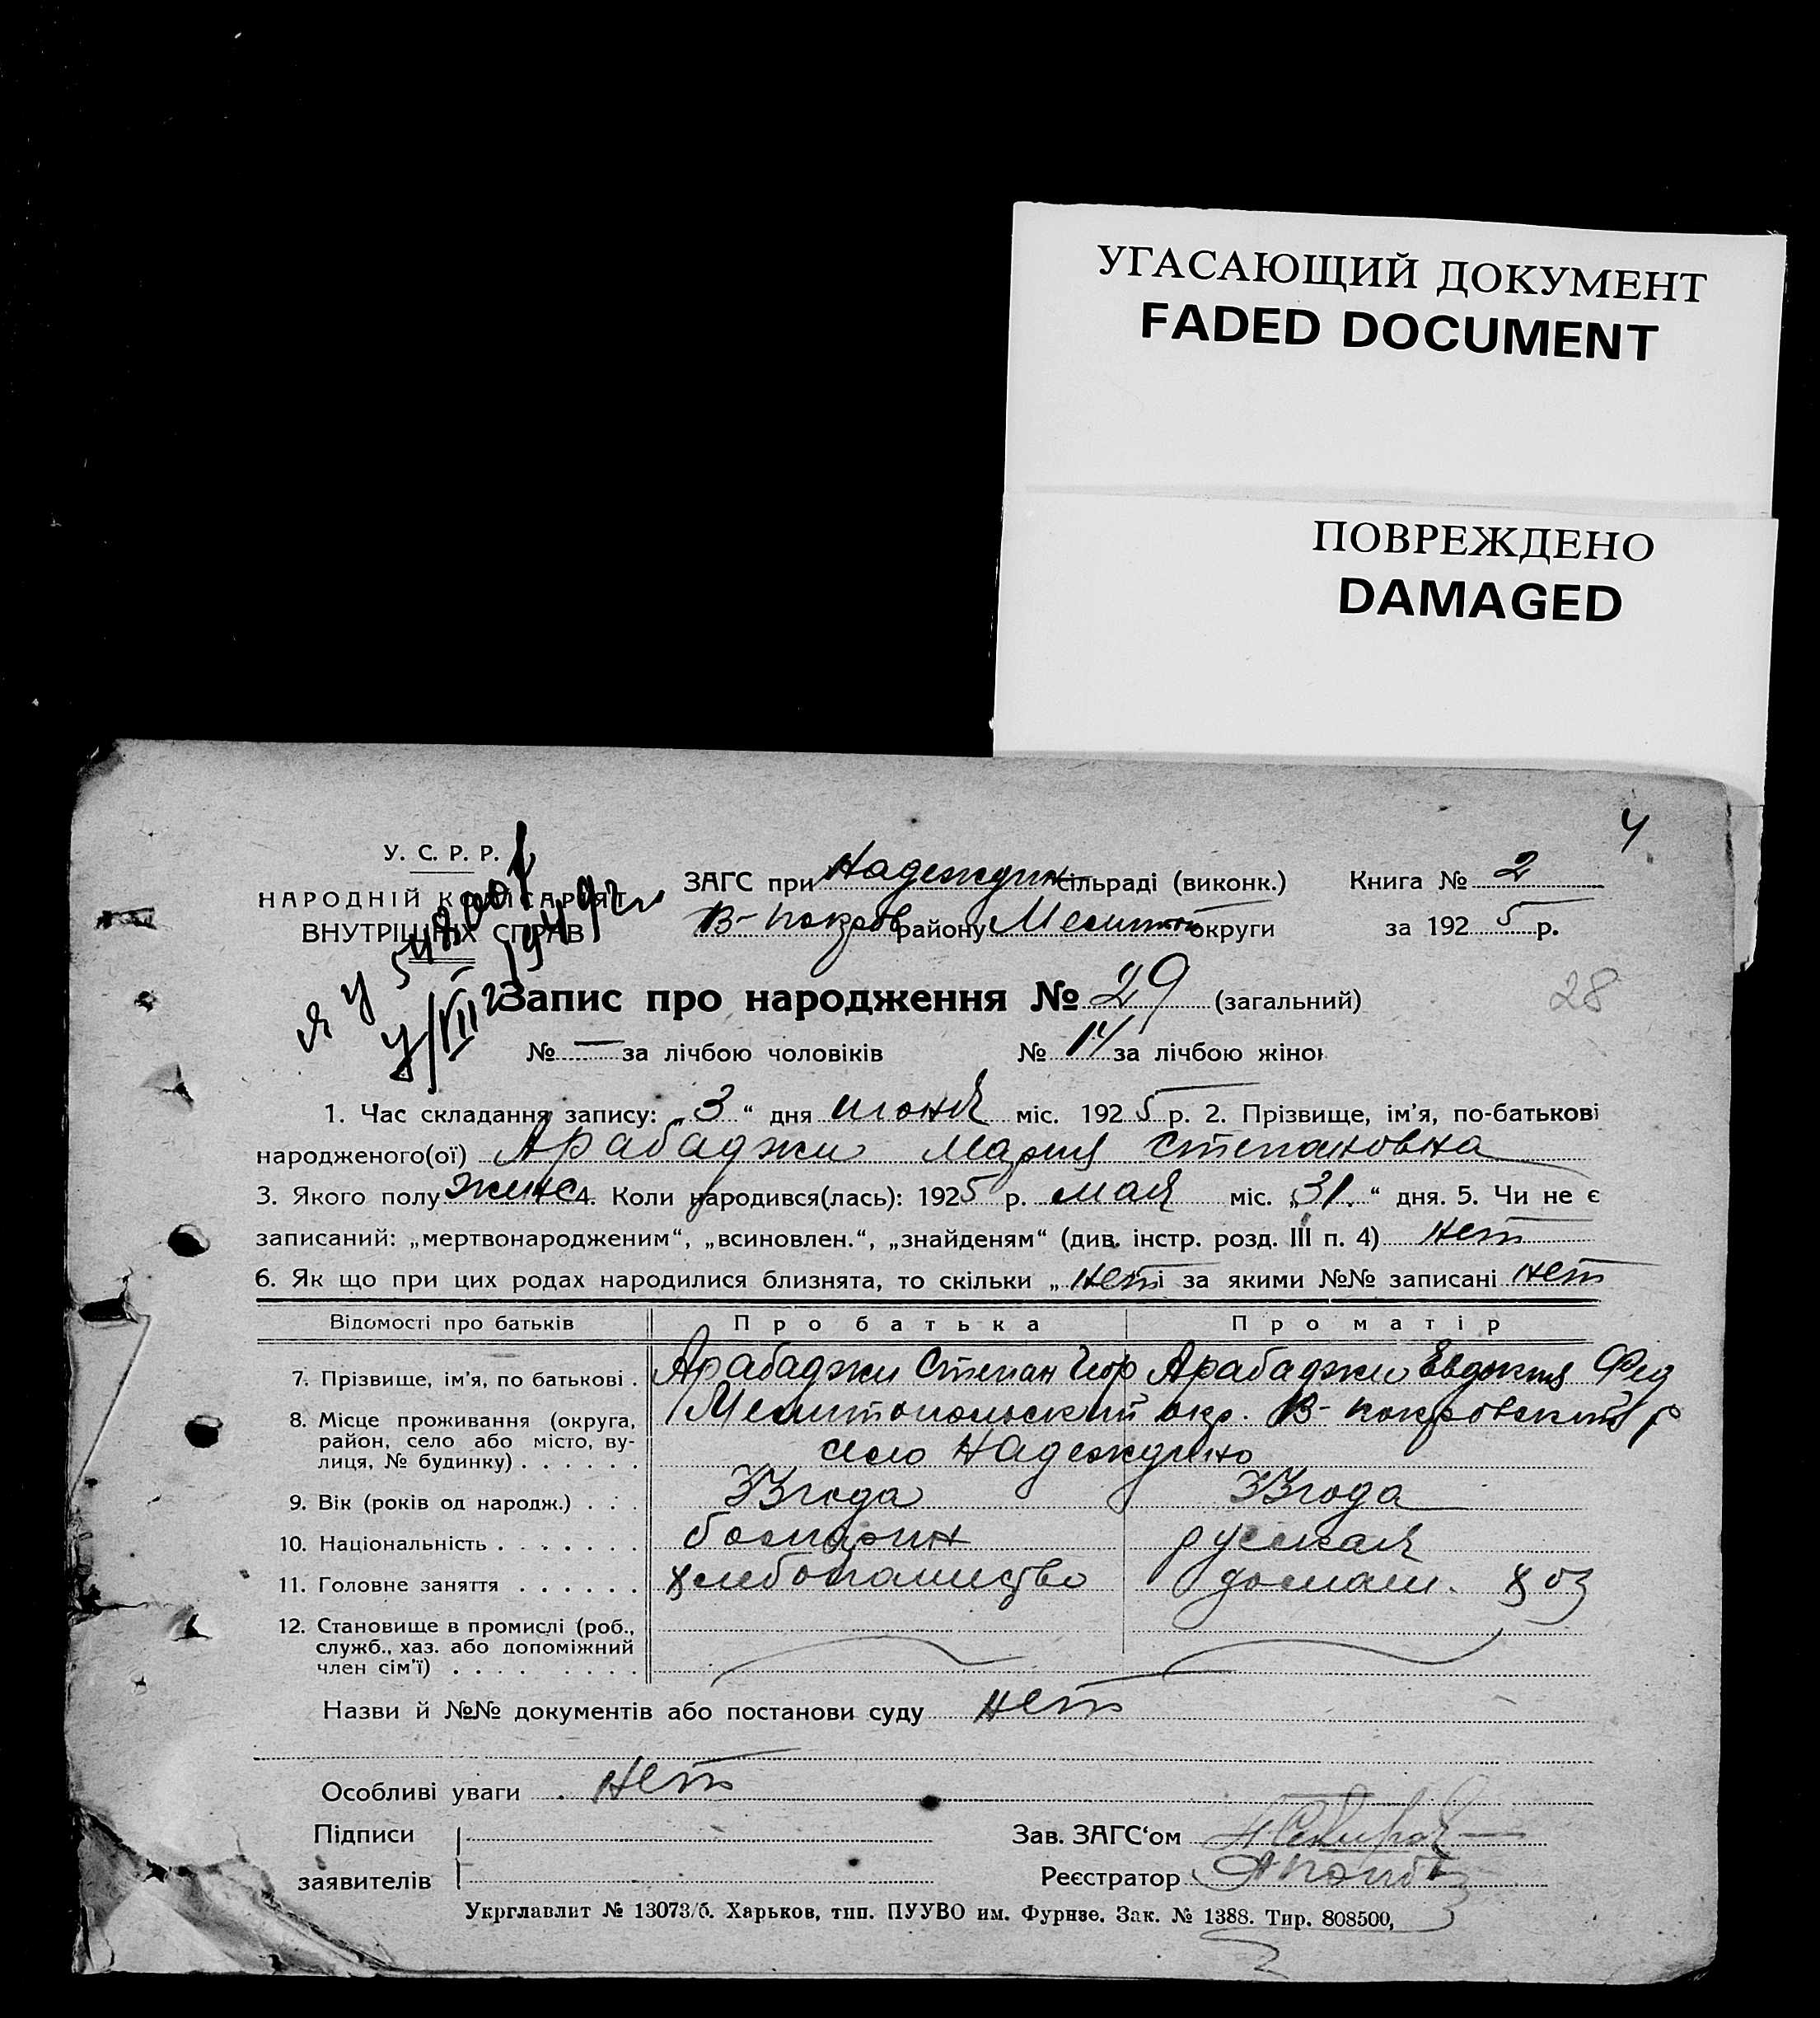 УГАСАЮЩИЙ ДОКУМЕНТ
FADED DOCUMENT
ПОВРЕЖДЕНО
DAMAGED
4
У. С. Р. Р.
НАРОДНІЙ КОМІСАРІЯТ
ВНУТРІШНІХ СПРАВ
ЗАГС при Надеждин сільраді (виконк.) Книга № 2
В-Покров району Мелитоп округи за 1925 р.
Запис про народження № 29 (загальний)
28
№ — за лічбою чоловіків № 14 за лічбою жінок
1. Час складання запису: „3“ дня июня міс. 1925 р. 2. Прізвище, ім’я, по-батькові
народженого(ої) Арабаджи Мария Степановна
3. Якого полу женс 4. Коли народився(лась): 1925 р. мая міс. „31“ дня. 5. Чи не є
записаний: „мертвонародженим“, „всиновлен.“, „знайденям“ (див. інстр. розд. III п. 4) нет
6. Як що при цих родах народилися близнята, то скільки „нет і за якими №№ записані нет
Відомості про батьків Про батька Про матір
7. Прізвище, ім’я, по батькові . Арабаджи Степан Геор Арабаджи Евдокия Фед
8. Місце проживання (округа, Мелитопольский окр. В-Покровский р
район, село або місто, ву-
лиця, № будинку) . . . . . . село Надеждино
9. Вік (років од народж.) . . . 33 года 33 года
10. Національність . . . . . . . болгарин русская
11. Головне заняття . . . . . . хлебопашество домаш. хоз
12. Становище в промислі (роб.,
служб., хаз. або допоміжний
член сім’ї) . . . . . . . . .
Назви й №№ документів або постанови суду нет
Особливі уваги нет
Підписи
заявителів
Зав. ЗАГС‘ом
Реєстратор
Укрглавлит № 13073/б. Харьков, тип. ПУУВО им. Фурнзе. Зак. № 1388. Тир. 808500,